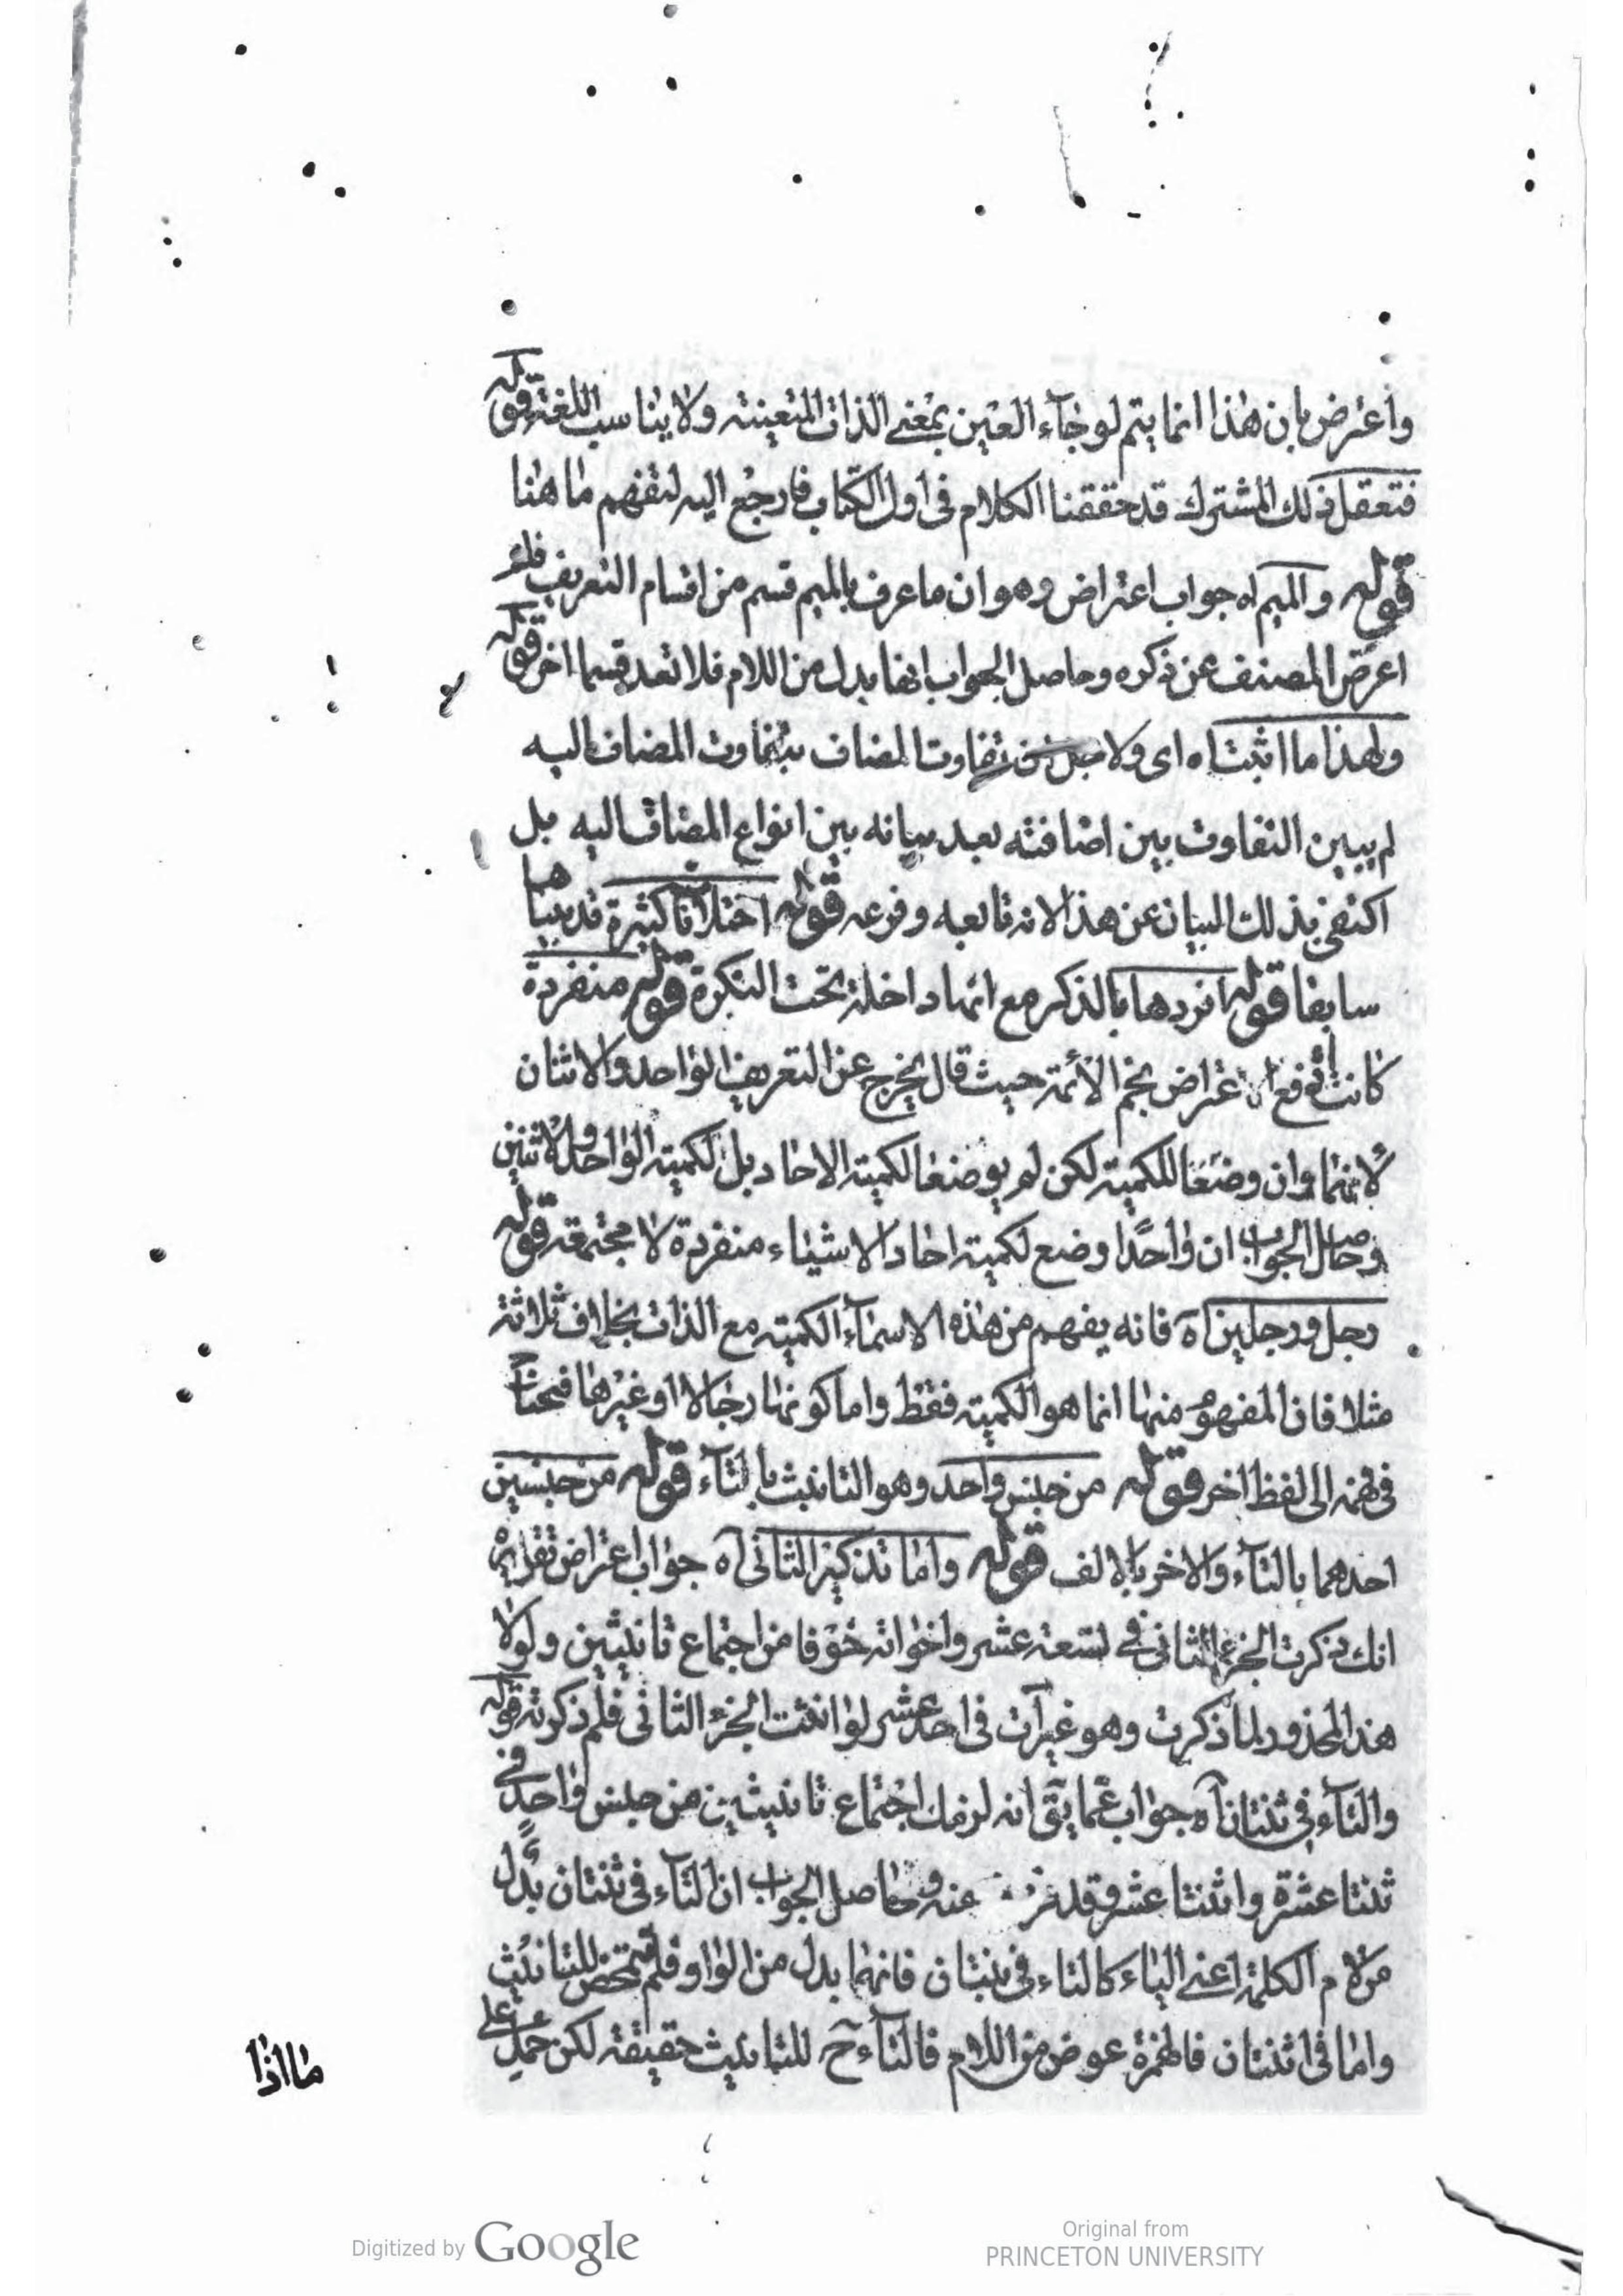 واعترض بان هذا انما يتم لو جآء العين بمعنى الذات المتعينة ولا يناسب اللغة قوله
فتعقل ذلك المشترك قد حققنا الكلام فى اول الكتاب فارجع اليه لتفهم ما هنا
قوله والميم اه جواب اعتراض وهو ان ما عرف بالميم قسم من اقسام التعريف فلم
اعرض المصنف عن ذكره وحاصل الجواب انها بدل من اللام فلا تعد قسما اخر قوله
ولهذا ما اثبتناه اى ولاجل تفاوت المضاف بتفاوت المضاف اليه
لم يبين التفاوت بين اضافته بعد بيانه بين انواع المضاف اليه بل
اكتفى بذلك البيان عن هذا لانه تابعه وفرعه قوله اختلافات كثيرة قد بيناها
سابقا قوله افردها بالذكر مع انها داخلة تحت النكرة قوله منفردة
كانت دفع اعتراض نجم الائمة حيث قال يخرج عن التعريف الواحد والاثنان
لانهما وان وضعا للكمية لكن لم يوضعا لكمية الاحاد بل لكمية الواحد والاثنين
وحاصل الجواب ان واحدًا وضع لكمية احاد الاشياء منفردة لا مجتمعة قوله
رجل ورجلين آه فانه يفهم من هذه الاسمآء الكمية مع الذات بخلاف ثلاثة
مثلا فان المفهوم منها انما هو الكمية فقط واما كونها رجالا او غيرها فتحتاج
فى فهمه الى لفظ اخر قوله من جنس واحد وهو التانيث بالتآء قوله من جنسين
احدهما بالتآء والاخر بالالف قوله واما تذكير الثانى آه جواب اعتراض تقريره
انك ذكرت الجزء الثانى فى تسعة عشر واخواته خوفا من اجتماع تانيثين ولولا
هذا المحذور لما ذكرت وهو غير آت فى احد عشر لو انثت الجزء الثانى فلم ذكرته قوله
والتآء فى ثنتان آه جواب عما يق انه لزمك اجتماع تانيثين من جنس واحد فى
ثنتا عشرة واثنتا عشرة وقد عنه وحاصل الجواب ان التآء فى ثنتان بدل
من لام الكلمة اعنى الياء كالتاء فى بنتان فانها بدل من الواو فلم تتمحض للتانيث
واما فى اثنتان فالهمزة عوض من اللام فالتآء ح للتانيث حقيقة لكن حمل على
ما اذا
Digitized by Google
Original from
PRINCETON UNIVERSITY